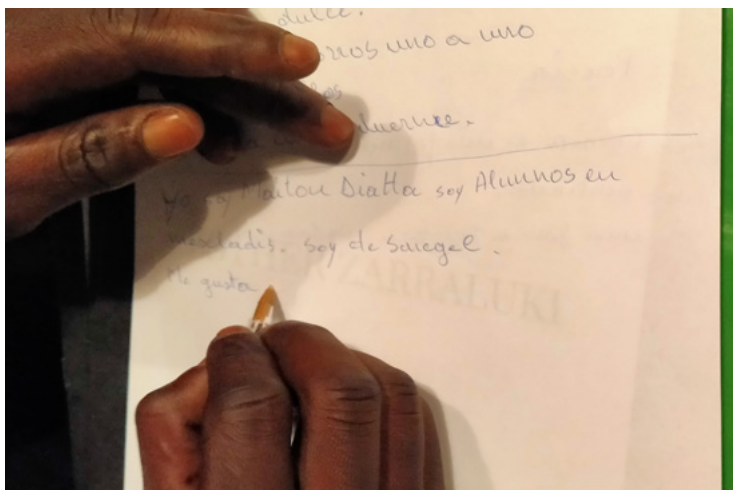 dulce.
uno a uno
duerme.
Yo soy Maitou Diatta soy Alumnos en
mescladis. soy de Senegel.
Me gusta
ZARRALUKI